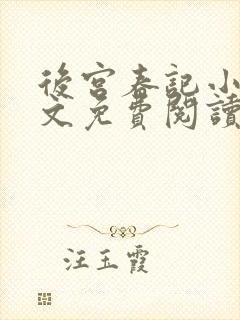 後宮春記小
文免費閱讀
汪玉霞